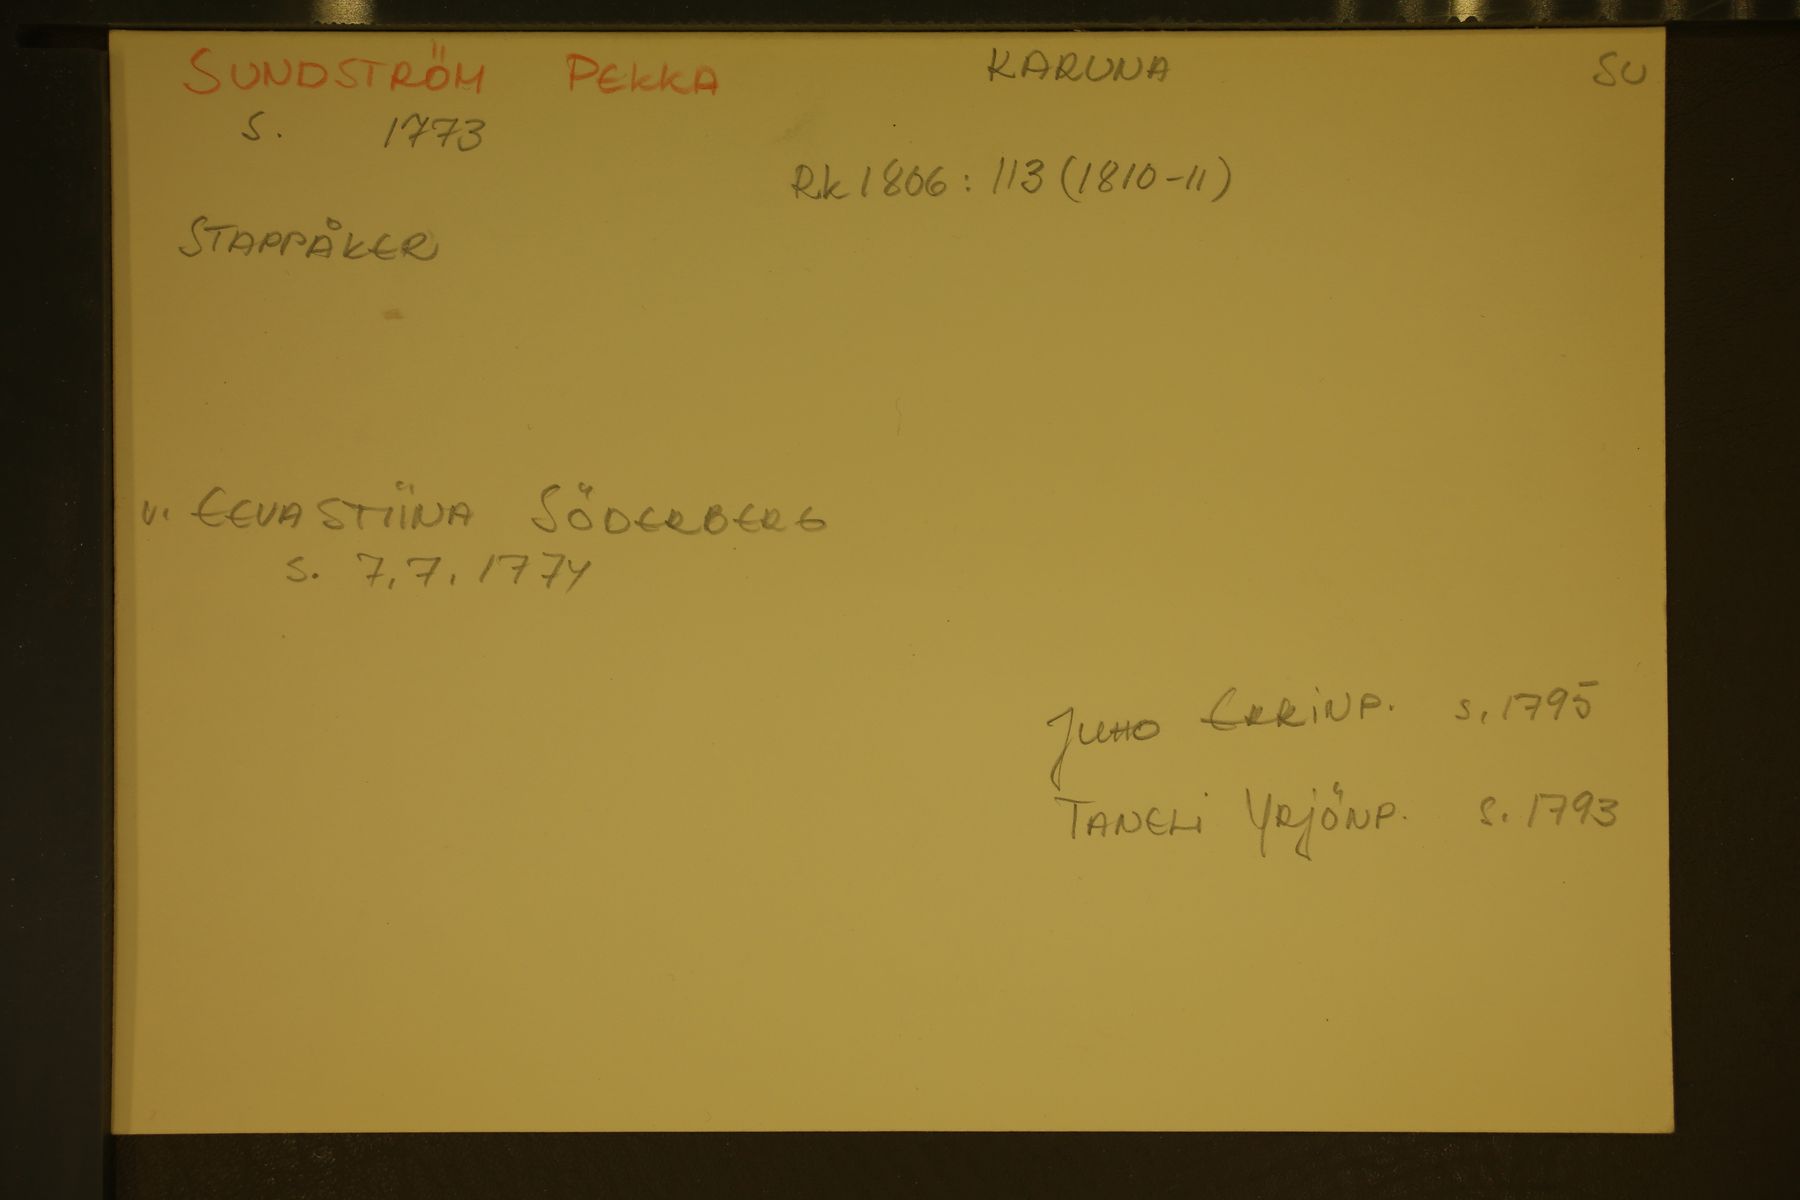 SUNDSTRÖM PEKKA KARUNA SU
S. 1773
Rk 1806: 113 (1810-11)
STAPPÅKER
V. EEVASTIINA SÖDERBERG
S. 7.7.1774
JUHO ERKINP. S. 1795
TANELI YRJÖNP. S. 1793